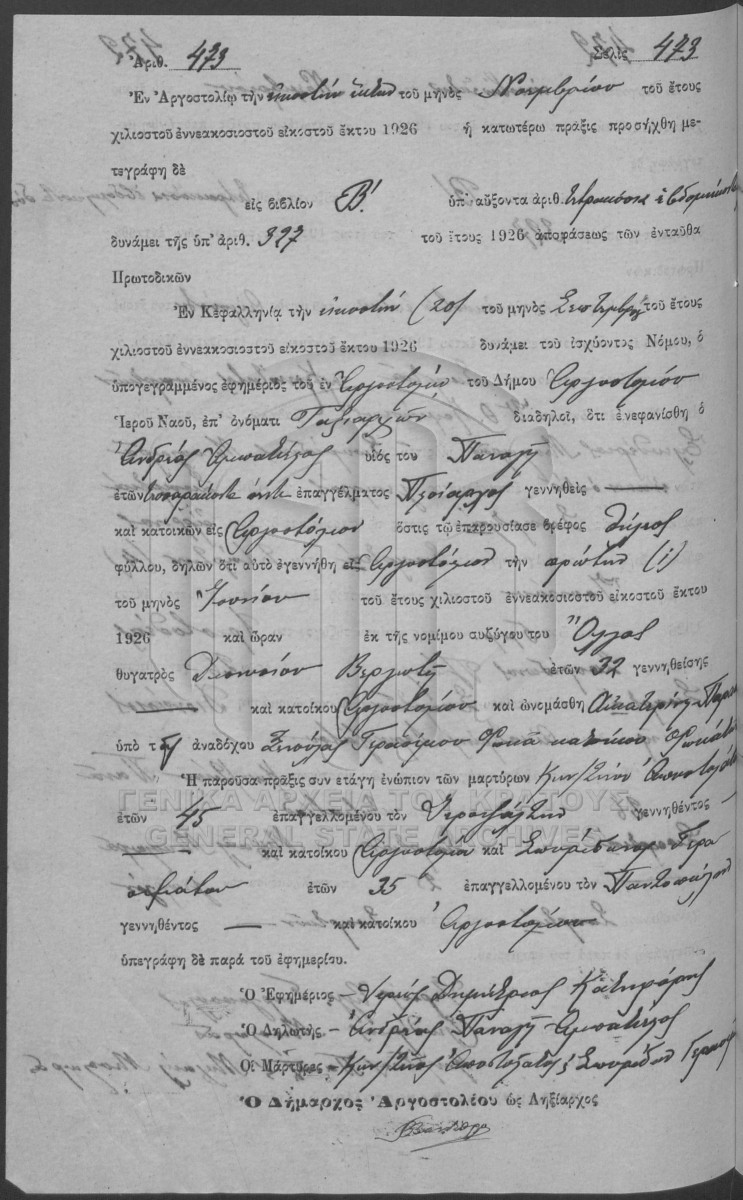 Ἀριθ. 473 Σελὶς 473
Ἐν Ἀργοστολίῳ τὴν εἰκοστὴν ἕκτην τοῦ μηνὸς Νοεμβρίου τοῦ ἔτους
χιλιοστοῦ ἐννεακοσιοστοῦ εἰκοστοῦ ἕκτου 1926 ἡ κατωτέρω πρᾶξις προσήχθη με-
τεγράφη δὲ
εἰς βιβλίον Β΄. ὑπ' αὔξοντα ἀριθ. τετρακόσια ἑβδομήκοντα
δυνάμει τῆς ὑπ' ἀριθ. 327 τοῦ ἔτους 1926 ἀποφάσεως τῶν ἐνταῦθα
Πρωτοδικῶν
Ἐν Κεφαλληνίᾳ τὴν εἰκοστὴν (20) τοῦ μηνὸς Σεπτεμβρίου τοῦ ἔτους
χιλιοστοῦ ἐννεακοσιοστοῦ εἰκοστοῦ ἕκτου 1926 δυνάμει τοῦ ἰσχύοντος Νόμου, ὁ
ὑπογεγραμμένος ἐφημέριος τοῦ ἐν Ἀργοστολίῳ τοῦ Δήμου Ἀργοστολίου
Ἱεροῦ Ναοῦ, ἐπ' ὀνόματι Ταξιαρχῶν διαδηλοῖ, ὅτι ἐνεφανίσθη ὁ
Ἀνδρέας Ἀμπατιέλος υἱὸς του Παναγῆ
ἐτῶν τεσσαράκοντα ὀκτὼ ἐπαγγέλματος Πλοίαρχος γεννηθεὶς —
καὶ κατοικῶν εἰς Ἀργοστόλιον ὅστις τῷ ἐπαρουσίασε βρέφος θήλεος
φύλλου, δηλῶν ὅτι αὐτὸ ἐγεννήθη εἰς Ἀργοστόλιον τὴν πρώτην (1)
τοῦ μηνὸς Ἰουνίου τοῦ ἔτους χιλιοστοῦ ἐννεακοσιοστοῦ εἰκοστοῦ ἕκτου
1926 καὶ ὥραν ἐκ τῆς νομίμου συζύγου του Ὄλγας
θυγατρὸς Διονυσίου Βεργωτῆ ἐτῶν 32 γεννηθείσης
— καὶ κατοίκου Ἀργοστολίου καὶ ὠνομάσθη Αἰκατερίνη
ὑπὸ τῆς ἀναδόχου Γερασίμου Φωκᾶ κατοίκου
Ἡ παροῦσα πρᾶξις συνετάγη ἐνώπιον τῶν μαρτύρων Κων/τίνου Ἀποστολάτου
ἐτῶν 45 ἐπαγγελλομένου τὸν Ἱεροψάλτην γεννηθέντος —
— καὶ κατοίκου Ἀργοστολίου καὶ Σπυρίδωνος
ἐτῶν 35 ἐπαγγελλομένου τὸν Παντοπώλην
γεννηθέντος — καὶ κατοίκου Ἀργοστολίου
ὑπεγράφη δὲ παρὰ τοῦ ἐφημερίου.
Ὁ Ἐφημέριος – Ἱερεὺς Δημήτριος Κατηφόρης
Ὁ Δηλωτὴς – Ἀνδρέας Παναγῆ Ἀμπατιέλος
Οἱ Μάρτυρες – Κων/τῖνος Ἀποστολάτος, Σπυρίδων
Ὁ Δήμαρχος Ἀργοστολέου ὡς Ληξίαρχος
ΓΕΝΙΚΑ ΑΡΧΕΙΑ ΤΟΥ ΚΡΑΤΟΥΣ
GENERAL STATE ARCHIVES